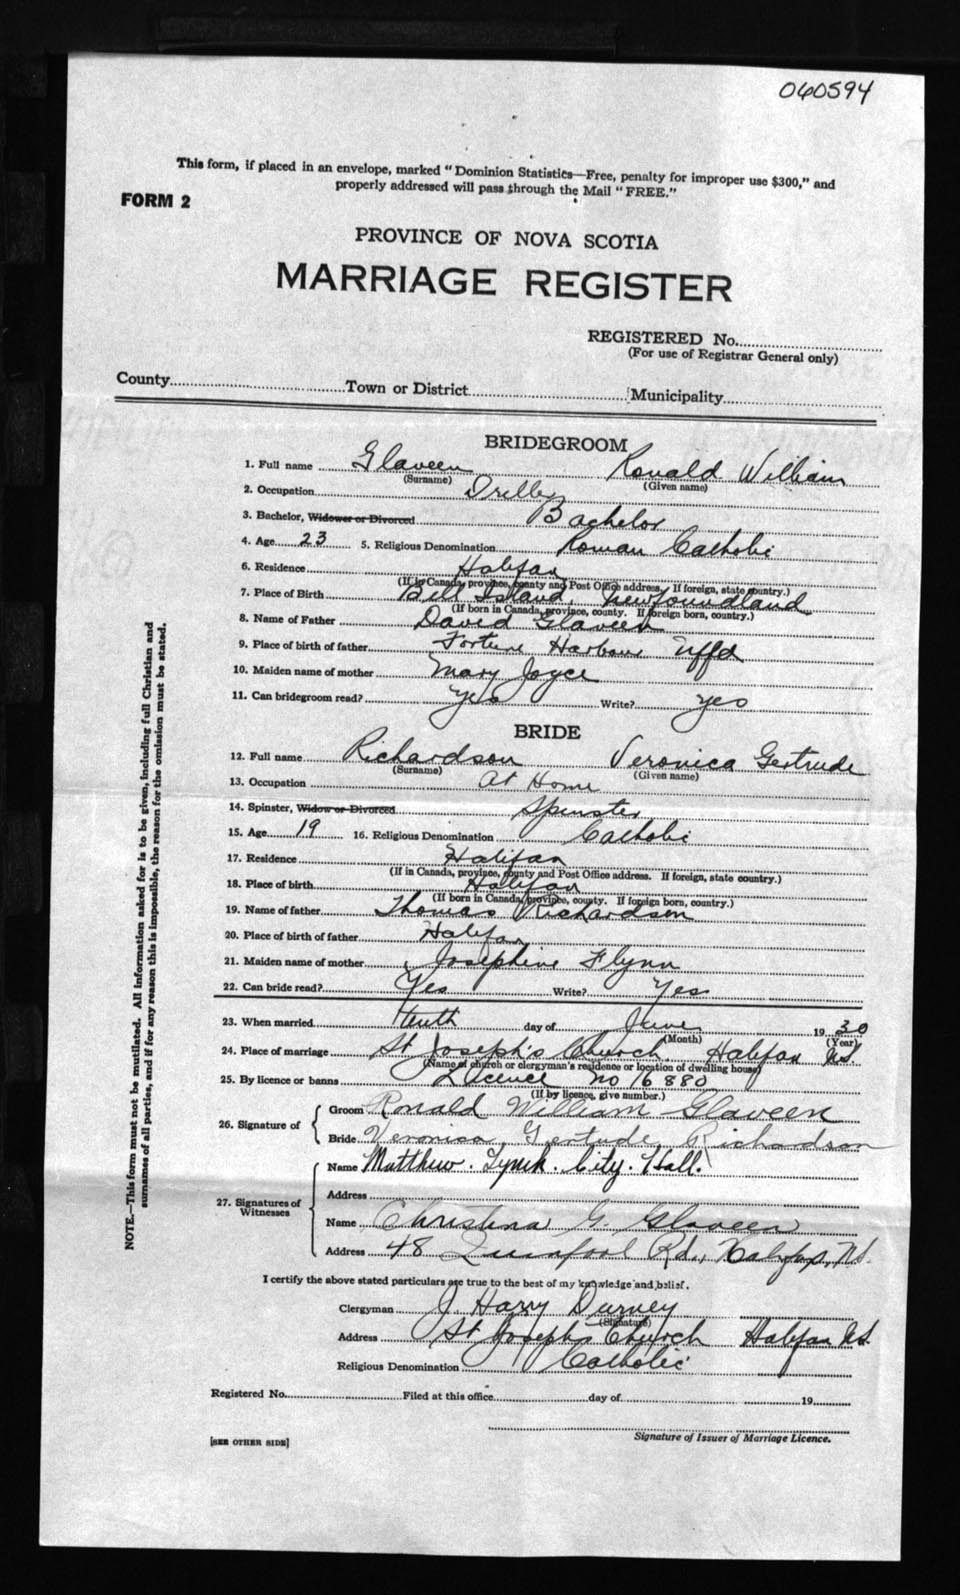 060594
This form, if placed in an envelope, marked "Dominion Statistics—Free, penalty for improper use $300," and
properly addressed will pass through the Mail "FREE."
FORM 2
PROVINCE OF NOVA SCOTIA
MARRIAGE REGISTER
REGISTERED No.
(For use of Registrar General only)
County Town or District Municipality
BRIDEGROOM
1. Full name Glaveen Ronald William
(Surname) (Given name)
2. Occupation Driller
3. Bachelor, Widower or Divorced Bachelor
4. Age 23 5. Religious Denomination Roman Catholic
6. Residence Halifax
(If in Canada, province, county and Post Office address. If foreign, state country.)
7. Place of Birth Bell Island, Newfoundland
(If born in Canada, province, county. If foreign born, country.)
8. Name of Father David Glaveen
9. Place of birth of father Fortune Harbour Nfld
10. Maiden name of mother Mary Joyce
11. Can bridegroom read? Yes Write? Yes
BRIDE
12. Full name Richardson Veronica Gertrude
(Surname) (Given name)
13. Occupation At Home
14. Spinster, Widow or Divorced Spinster
15. Age 19 16. Religious Denomination Catholic
17. Residence Halifax
(If in Canada, province, county and Post Office address. If foreign, state country.)
18. Place of birth Halifax
(If born in Canada, province, county. If foreign born, country.)
19. Name of father Thomas Richardson
20. Place of birth of father Halifax
21. Maiden name of mother Josephine Flynn
22. Can bride read? Yes Write? Yes
23. When married Tenth day of June 19 30
(Month) (Year)
24. Place of marriage St Joseph's Church Halifax N.S.
(Name of church or clergyman's residence or location of dwelling house)
25. By licence or banns Licence no 16880
(If by licence, give number.)
26. Signature of
Groom Ronald William Glaveen
Bride Veronica Gertrude Richardson
27. Signatures of Witnesses
Name Matthew. Lynch. City. Hall.
Address
Name Christina G. Glaveen
Address 48 Quinpool Rd., Halifax, N.S.
I certify the above stated particulars are true to the best of my knowledge and belief.
Clergyman J. Harry Durney
(Signature)
Address St Joseph's Church Halifax N.S.
Religious Denomination Catholic
Registered No. Filed at this office day of 19
Signature of Issuer of Marriage Licence.
[SEE OTHER SIDE]
NOTE.—This form must not be mutilated. All information asked for is to be given, including full Christian and
surnames of all parties, and if for any reason this is impossible, the reason for the omission must be stated.